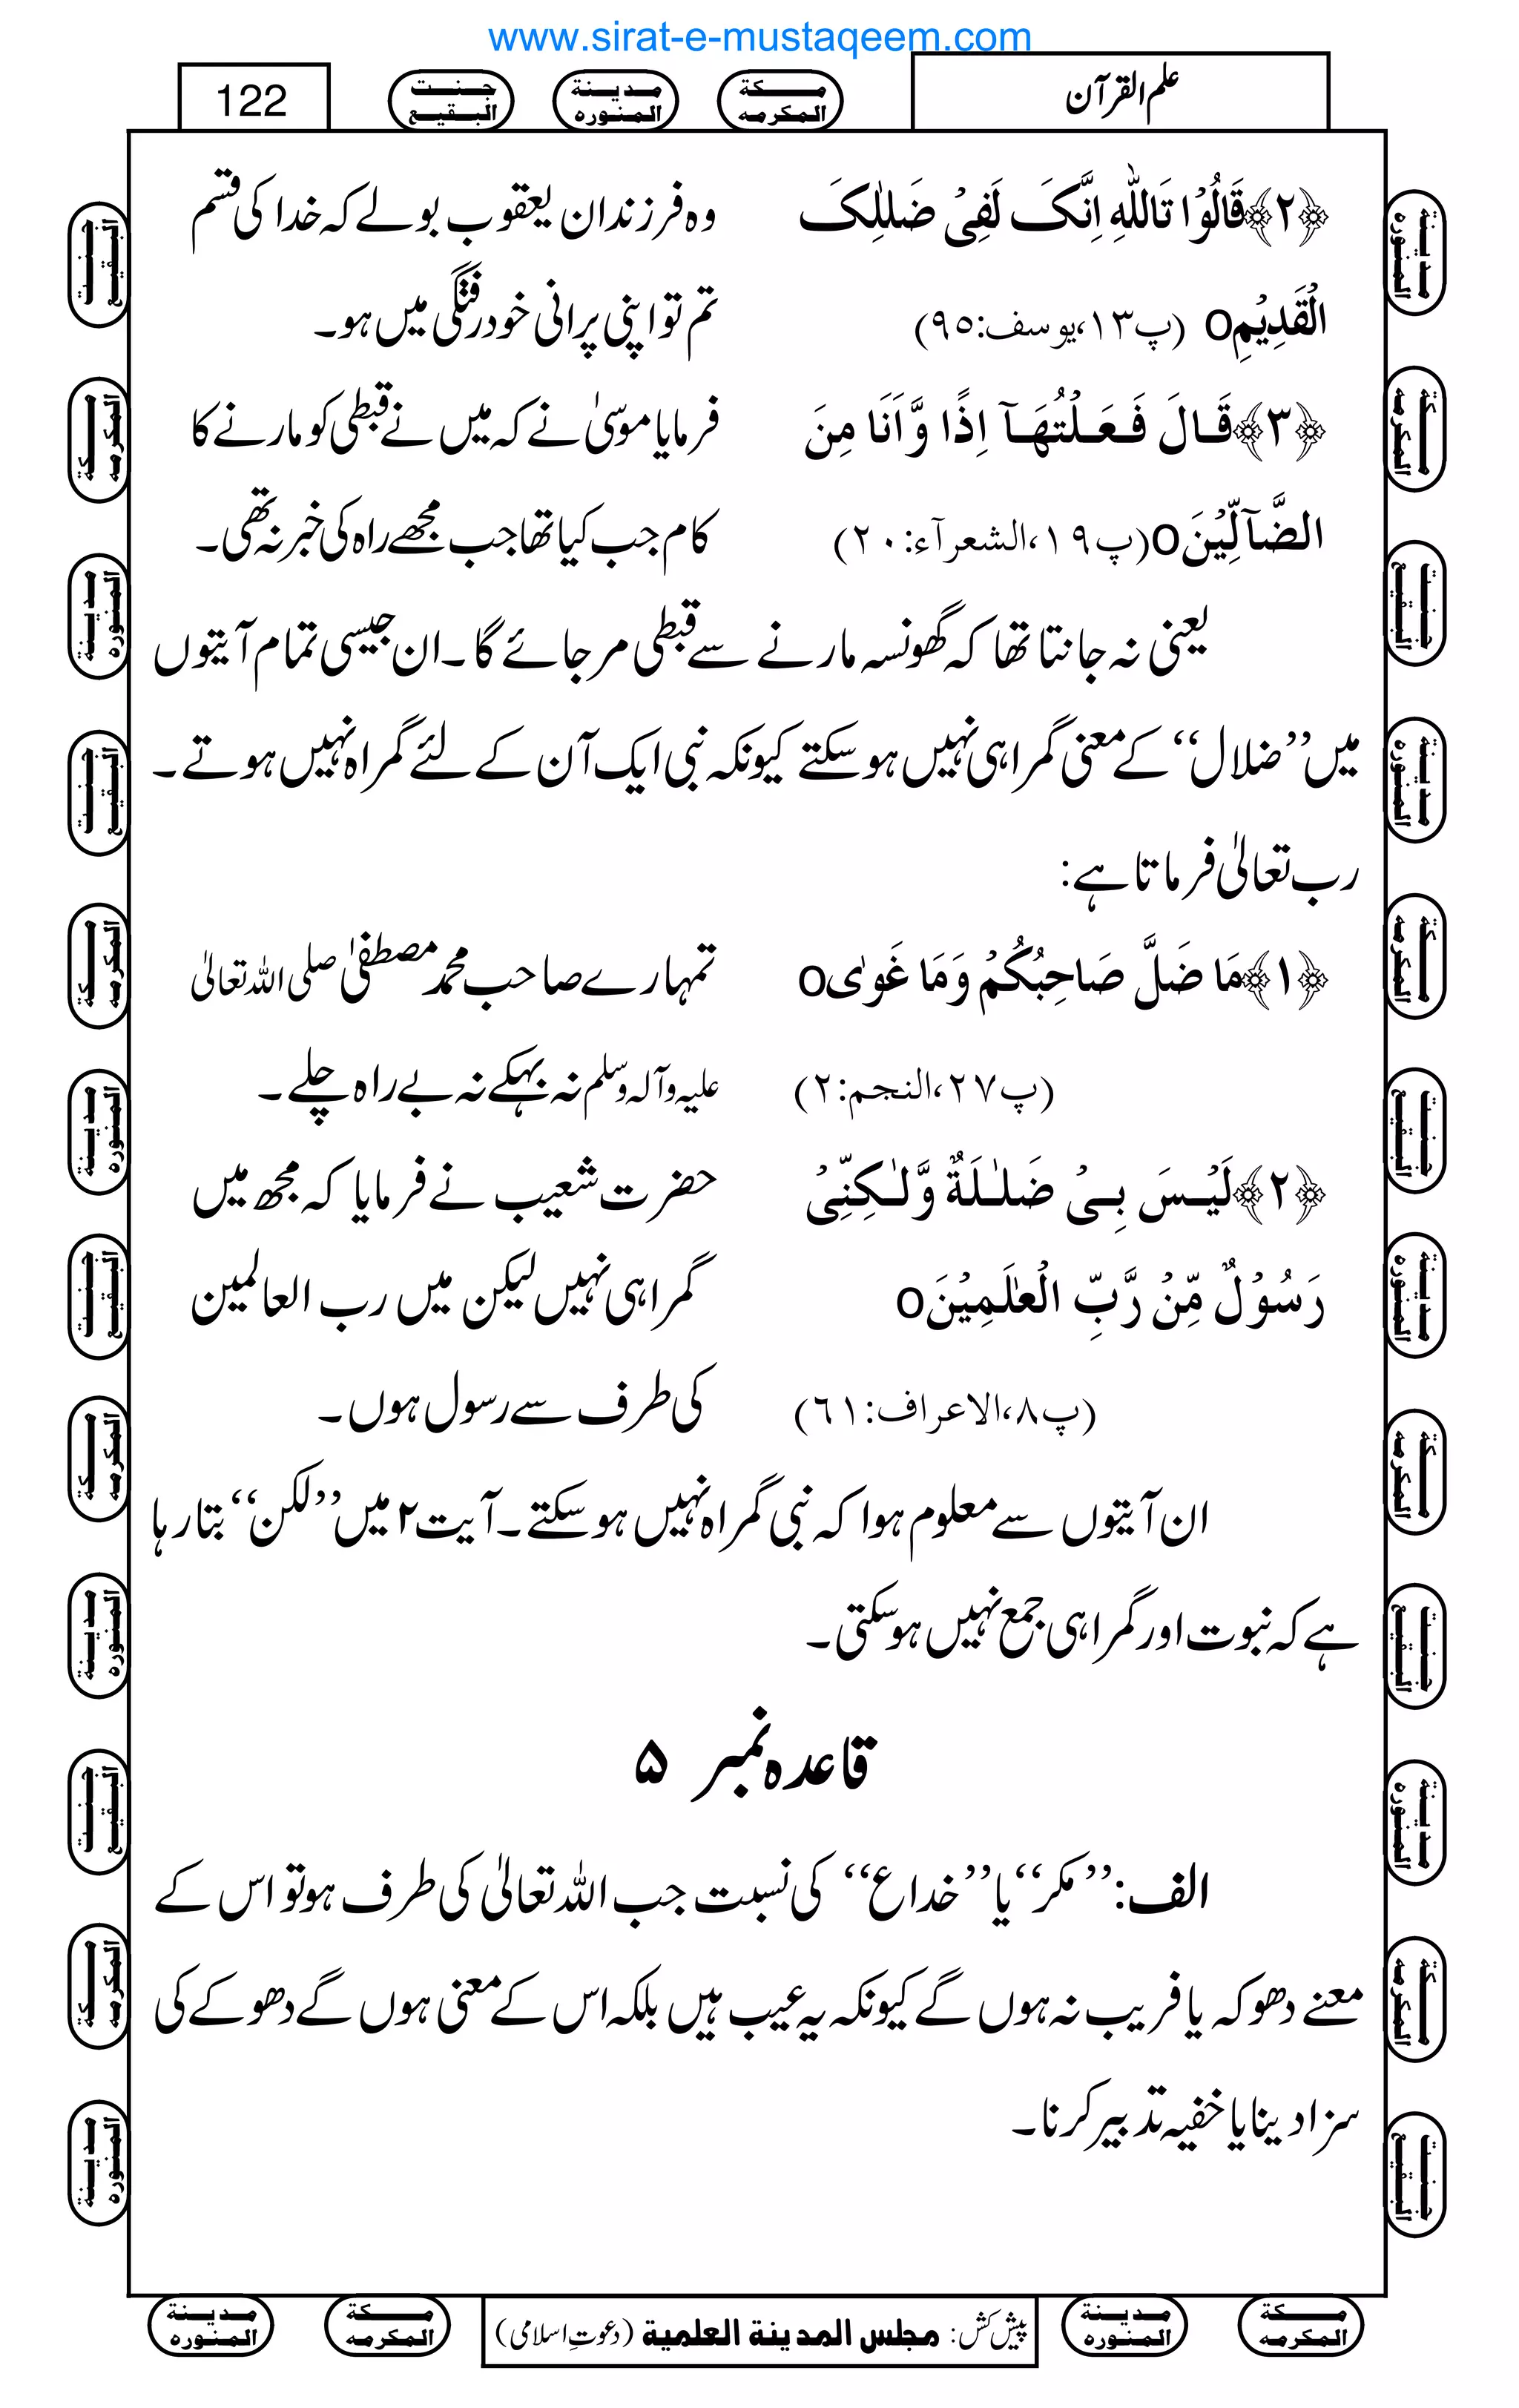 www.sirat-e-mustaqeem.com
علم القرآن
مـكة المكرمه
مدينة المنوره
جنت البقيع
122
﴿۲﴾قَالُوۡا تَاللّٰہِ اِنَّکَ لَفِیۡ ضَلٰلِکَ
وہ فرزندان یعقوب بولے کہ خدا کی قسم
الْقَدِیۡمِo (پ۱۳،یوسف:۹۵)
تم تو اپنی پرانی خود رفتگی میں ہو۔
﴿۳﴾قَالَ فَعَلْتُہَاۤ اِذًا وَّاَنَا مِنَ
فرمایا موسیٰ نے کہ میں نے قبطی کو مارنے کا
الضَّآلِّیۡنَo(پ۱۹،الشعرآء:۲۰)
کام جب کیا تھا جب مجھے راہ کی خبر نہ تھی۔
یعنی نہ جانتا تھا کہ گھونسہ مارنے سے قبطی مر جائے گا۔ ان جیسی تمام آیتوں
میں ’’ضلال‘‘ کے معنی گمراہی نہیں ہوسکتے کیونکہ نبی ایک آن کے لئے گمراہ نہیں ہوتے۔
رب تعالیٰ فرماتا ہے:
﴿۱﴾مَا ضَلَّ صَاحِبُکُمْ وَمَا غَوٰیo
تمہارے صاحب محمد مصطفیٰ صلی اللہ تعالیٰ
(پ۲۷،النجم:۲)
علیہ وآلہ وسلم نہ بہکے نہ بے راہ چلے۔
﴿۲﴾لَیۡسَ بِیۡ ضَلٰلَۃٌ وَّلٰکِنِّیۡ
حضرت شعیب نے فرمایا کہ مجھ میں
رَسُوۡلٌ مِّنۡ رَّبِّ الْعٰلَمِیۡنَo
گمراہی نہیں لیکن میں رب العالمین
(پ۸،الاعراف:۶۱)
کی طرف سے رسول ہوں۔
ان آیتوں سے معلوم ہوا کہ نبی گمراہ نہیں ہوسکتے۔ آیت ۲ میں ’’لکن‘‘ بتا رہا
ہے کہ نبوت اور گمراہی جمع نہیں ہوسکتی۔
قاعدہ نمبر ۵
الف: ’’مکر‘‘ یا ’’خداع‘‘ کی نسبت جب اللہ تعالیٰ کی طرف ہو تو اس کے
معنے دھوکہ یا فریب نہ ہوں گے کیونکہ یہ عیب ہیں بلکہ اس کے معنی ہوں گے دھوکے کی
سزا دینا یا خفیہ تدبیر کرنا۔
مـكة المكرمه
مدينة المنوره
پیش کش: مجلس المدينة العلمية (دعوتِ اسلامی)
مـكة المكرمه
مدينة المنوره